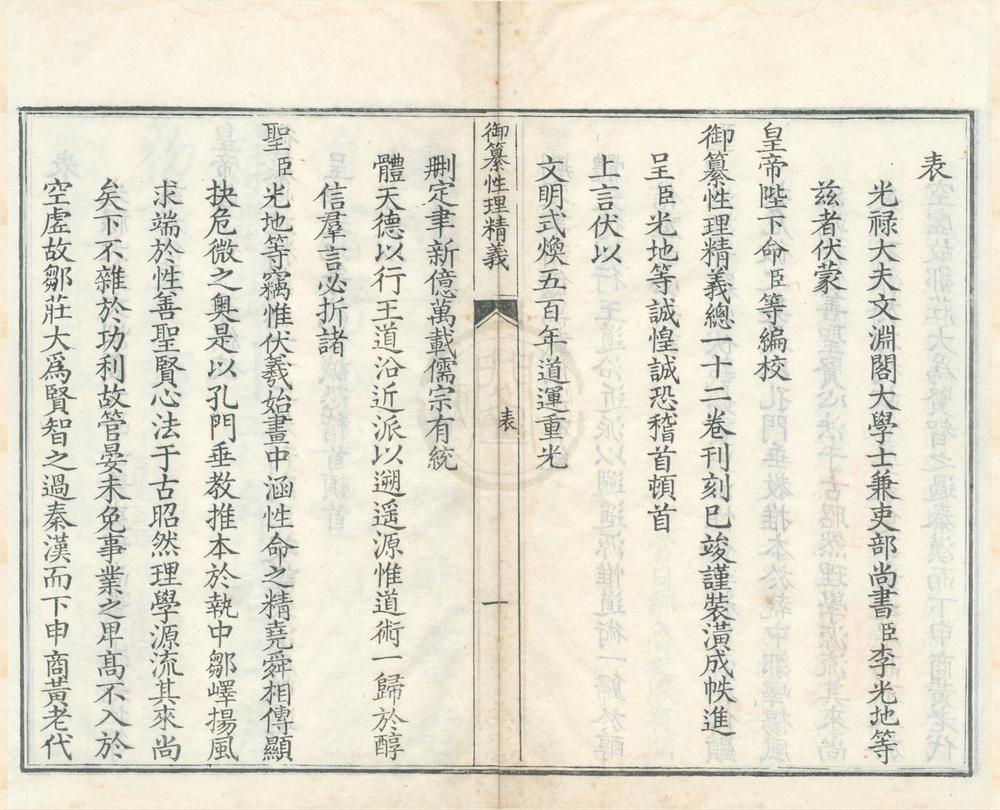 表
光祿大夫文淵閣大學士兼吏部尚書臣李光地等
茲者伏蒙
皇帝陛下命臣等編校
御纂性理精義總一十二卷刊刻已竣謹裝潢成帙進
呈臣光地等誠惶誠恐稽首頓首
上言伏以
文明式煥五百年道運重光
御纂性理精義
表
一
刪定聿新億萬載儒宗有統
體天德以行王道沿近派以遡遥源惟道術一歸於醇
信羣言必折諸
聖臣光地等竊惟伏羲始畫中涵性命之精堯舜相傳顯
抉危微之奥是以孔門垂教推本於執中鄒嶧揚風
求端於性善聖賢心法于古昭然理學源流其來尚
矣下不雜於功利故管晏未免事業之卑髙不入於
空虚故鄒莊大爲賢智之過秦漢而下申商黃老代